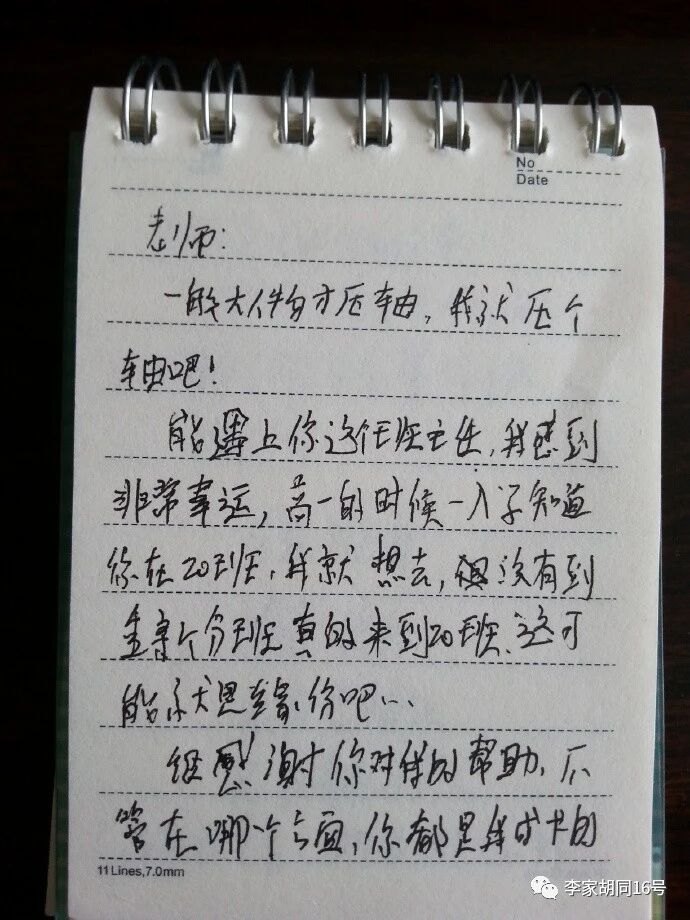 No
Date
老师:
一般大人物才压轴,我就压个
轴吧!
能遇上你这个班主任,我感到
非常幸运,高一的时候一入学知道
你在20班,我就想去,想没有到
重新个分班真的来到20班,这可
能就是缘份吧...
很感谢你对我的帮助,不
管在哪个方面,你都是我成长的
11Lines,7.0mm
李家胡同16号